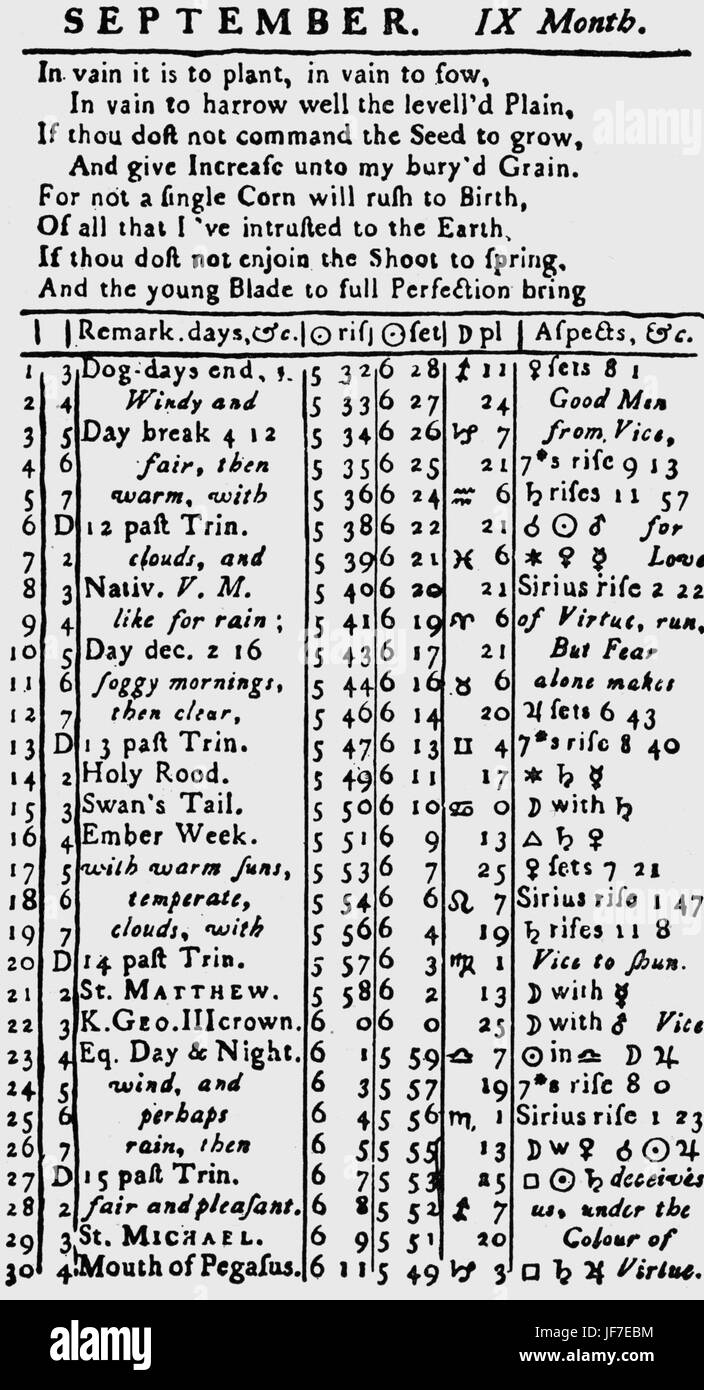 SEPTEMBER. IX Month.
In vain it is to plant, in vain to ſow,
In vain to harrow well the levell'd Plain,
If thou doſt not command the Seed to grow,
And give Increaſe unto my bury'd Grain.
For not a ſingle Corn will ruſh to Birth,
Of all that I've intruſted to the Earth,
If thou doſt not enjoin the Shoot to ſpring,
And the young Blade to full Perfection bring
| | Remark.days,&c. | ☉ riſ | ☉ ſet | ☽ pl | Aſpects, &c.
1 3 Dog-days end, 5 32 6 28 ♐ 11 ♀ ſets 8 1
2 4 Windy and 5 33 6 27 24 Good Men
3 5 Day break 4 12 5 34 6 26 ♑ 7 from Vice,
4 6 fair, then 5 35 6 25 21 7*s riſe 9 13
5 7 warm, with 5 36 6 24 ♒ 6 ♄ riſes 11 57
6 D 12 paſt Trin. 5 38 6 22 21 ☌ ☉ ♂ for
7 2 clouds, and 5 39 6 21 ♓ 6 ⚹ ♀ ☿ Love
8 3 Nativ. V. M. 5 40 6 20 21 Sirius riſe 2 22
9 4 like for rain; 5 41 6 19 ♈ 6 of Virtue, run,
10 5 Day dec. 2 16 5 43 6 17 21 But Fear
11 6 foggy mornings, 5 44 6 16 ♉ 6 alone makes
12 7 then clear, 5 46 6 14 20 ♃ ſets 6 43
13 D 13 paſt Trin. 5 47 6 13 ♊ 4 7*s riſe 8 40
14 2 Holy Rood. 5 49 6 11 17 ⚹ ♄ ☿
15 3 Swan's Tail. 5 50 6 10 ♋ 0 ☽ with ♄
16 4 Ember Week. 5 51 6 9 13 △ ♄ ♀
17 5 with warm ſuns, 5 53 6 7 25 ♀ ſets 7 21
18 6 temperate, 5 54 6 6 ♌ 7 Sirius riſe 1 47
19 7 clouds, with 5 56 6 4 19 ♄ riſes 11 8
20 D 14 paſt Trin. 5 57 6 3 ♍ 1 Vice to ſhun.
21 2 St. MATTHEW. 5 58 6 2 13 ☽ with ☿
22 3 K.GEO.III crown. 6 0 6 0 25 ☽ with ♂ Vice
23 4 Eq. Day & Night. 6 1 5 59 ♎ 7 ☉ in ♎ ☽ ♃
24 5 wind, and 6 3 5 57 19 7*s riſe 8 0
25 6 perhaps 6 4 5 56 ♏ 1 Sirius riſe 1 23
26 7 rain, then 6 5 5 55 13 ☽ w ♀ ☌ ☉ ♃
27 D 15 paſt Trin. 6 7 5 53 25 □ ☉ ♄ deceives
28 2 fair and pleaſant. 6 8 5 52 ♐ 7 us, under the
29 3 St. MICHAEL. 6 9 5 51 20 Colour of
30 4 Mouth of Pegaſus. 6 11 5 49 ♑ 3 □ ♄ ♃ Virtue.
alamy
alamy
alamy
alamy
alamy
Image ID: JF7EBM
www.alamy.com